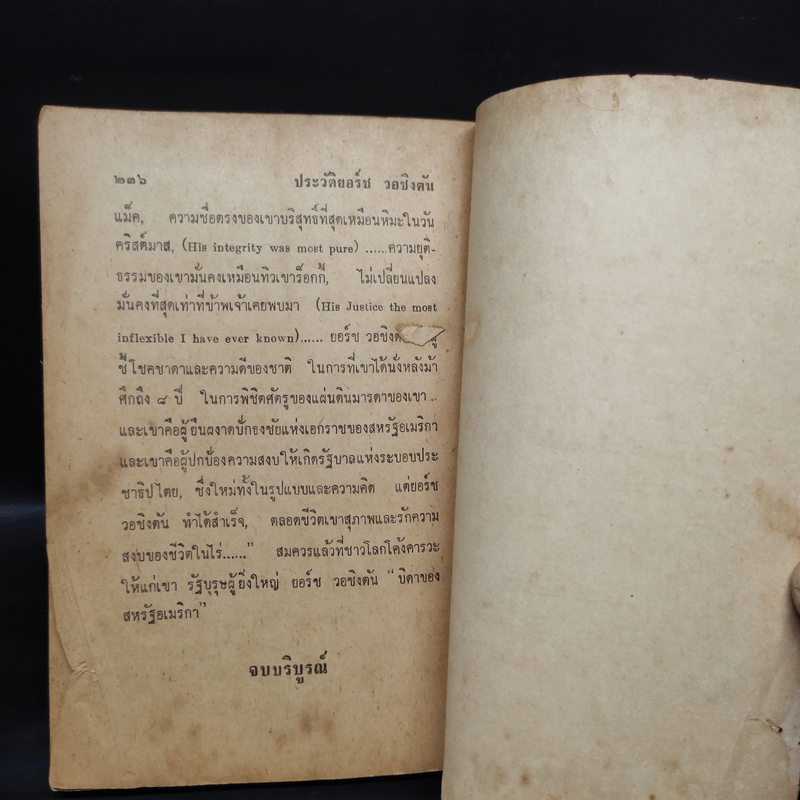 ๒๓๖ ประวัติยอร์ช วอชิงตัน
แม็ค, ความซื่อตรงของเขาบริสุทธิ์ที่สุดเหมือนหิมะในวัน
คริสต์มาส, (His integrity was most pure) .....ความยุติ-
ธรรมของเขามั่นคงเหมือนทิวเขาร็อกกี้, ไม่เปลี่ยนแปลง
มั่นคงที่สุดเท่าที่ข้าพเจ้าเคยพบมา (His Justice the most
inflexible I have ever known)...... ยอร์ช วอชิงตั
ชี้โชคชาตาและความดีของชาติ ในการที่เขาได้นั่งหลังม้า
ศึกถึง ๘ ปี ในการพิชิตศัตรูของแผ่นดินมารดาของเขา ..
และเขาคือผู้ยืนผงาดปักธงชัยแห่งเอกราชของสหรัฐอเมริกา
และเขาคือผู้ปกป้องความสงบให้เกิดรัฐบาลแห่งระบอบประ
ชาธิปไตย, ซึ่งใหม่ทั้งในรูปแบบและความคิด แต่ยอร์ช
วอชิงตัน ทำได้สำเร็จ, ตลอดชีวิตเขาสุภาพและรักความ
สงบของชีวิตในไร่......” สมควรแล้วที่ชาวโลกโค้งคารวะ
ให้แก่เขา รัฐบุรุษผู้ยิ่งใหญ่ ยอร์ช วอชิงตัน “บิดาของ
สหรัฐอเมริกา”
จบบริบูรณ์